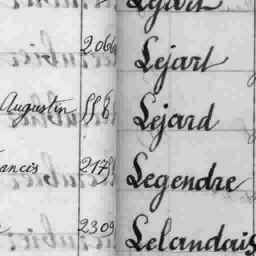 Lejart
206 Lejart
Augustin 558 Lejard
ancis 217 Legendre
2309 Lelandais